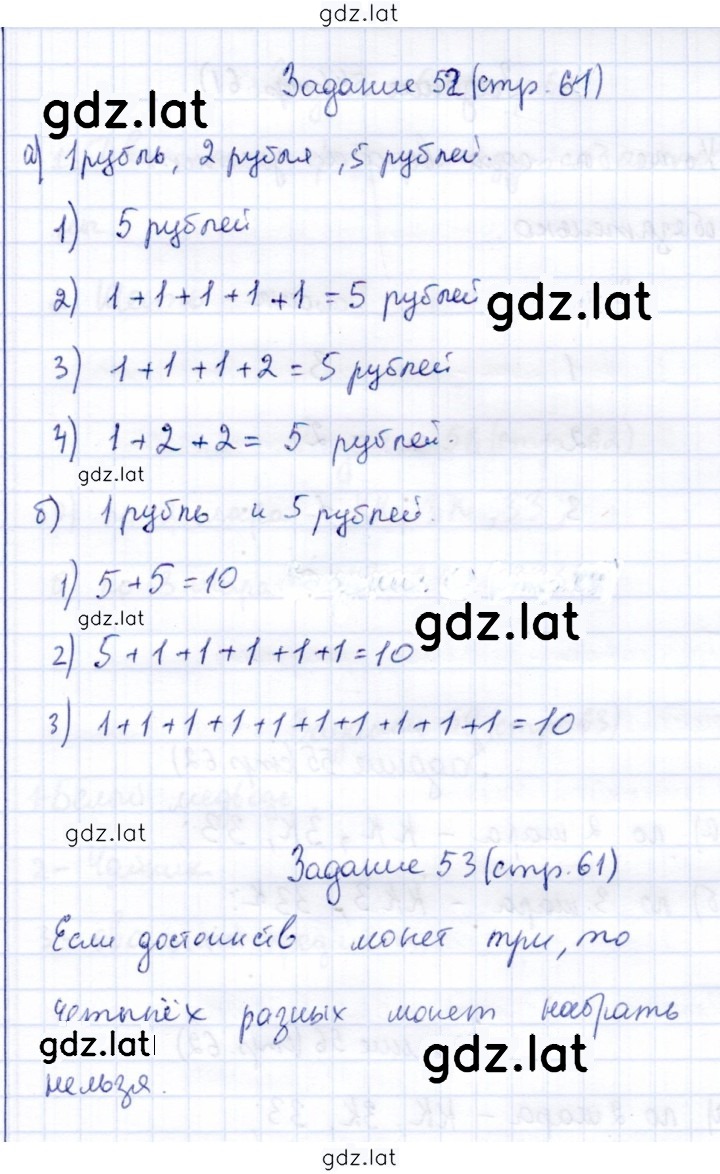 gdz.lat
Задание 52 (стр. 61)
gdz.lat
а) 1 рубль, 2 рубля, 5 рублей.
1) 5 рублей
2) 1+1+1+1+1=5 рублей
gdz.lat
3) 1+1+1+2=5 рублей
4) 1+2+2= 5 рублей.
gdz.lat
б) 1 рубль и 5 рублей.
1) 5+5=10
gdz.lat
gdz.lat
2) 5+1+1+1+1+1=10
3) 1+1+1+1+1+1+1+1+1+1=10
gdz.lat
Задание 53 (стр. 61)
Если достоинств монет три, то
четырёх разных монет набрать
gdz.lat
gdz.lat
нельзя.
gdz.lat